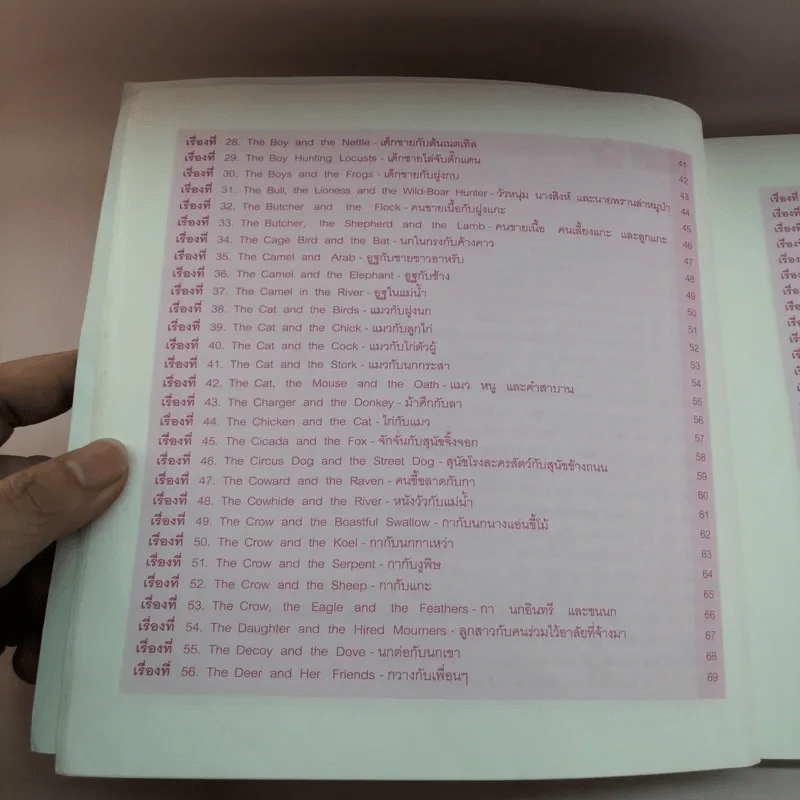 เรื่องที่ 28. The Boy and the Nettle - เด็กชายกับต้นเนตเทิล 41
เรื่องที่ 29. The Boy Hunting Locusts - เด็กชายไล่จับตั๊กแตน 42
เรื่องที่ 30. The Boys and the Frogs - เด็กชายกับฝูงกบ 43
เรื่องที่ 31. The Bull, the Lioness and the Wild-Boar Hunter - วัวหนุ่ม นางสิงห์ และนายพรานล่าหมูป่า 44
เรื่องที่ 32. The Butcher and the Flock - คนขายเนื้อกับฝูงแกะ 45
เรื่องที่ 33. The Butcher, the Shepherd and the Lamb - คนขายเนื้อ คนเลี้ยงแกะ และลูกแกะ 46
เรื่องที่ 34. The Cage Bird and the Bat - นกในกรงกับค้างคาว 47
เรื่องที่ 35. The Camel and Arab - อูฐกับชายชาวอาหรับ 48
เรื่องที่ 36. The Camel and the Elephant - อูฐกับช้าง 49
เรื่องที่ 37. The Camel in the River - อูฐในแม่น้ำ 50
เรื่องที่ 38. The Cat and the Birds - แมวกับฝูงนก 51
เรื่องที่ 39. The Cat and the Chick - แมวกับลูกไก่ 52
เรื่องที่ 40. The Cat and the Cock - แมวกับไก่ตัวผู้ 53
เรื่องที่ 41. The Cat and the Stork - แมวกับนกกระสา 54
เรื่องที่ 42. The Cat, the Mouse and the Oath - แมว หนู และคำสาบาน 55
เรื่องที่ 43. The Charger and the Donkey - ม้าศึกกับลา 56
เรื่องที่ 44. The Chicken and the Cat - ไก่กับแมว 57
เรื่องที่ 45. The Cicada and the Fox - จักจั่นกับสุนัขจิ้งจอก 58
เรื่องที่ 46. The Circus Dog and the Street Dog - สุนัขโรงละครสัตว์กับสุนัขข้างถนน 59
เรื่องที่ 47. The Coward and the Raven - คนขี้ขลาดกับกา 60
เรื่องที่ 48. The Cowhide and the River - หนังวัวกับแม่น้ำ 61
เรื่องที่ 49. The Crow and the Boastful Swallow - กากับนกนางแอ่นขี้โม้ 62
เรื่องที่ 50. The Crow and the Koel - กากับนกกาเหว่า 63
เรื่องที่ 51. The Crow and the Serpent - กากับงูพิษ 64
เรื่องที่ 52. The Crow and the Sheep - กากับแกะ 65
เรื่องที่ 53. The Crow, the Eagle and the Feathers - กา นกอินทรี และขนนก 66
เรื่องที่ 54. The Daughter and the Hired Mourners - ลูกสาวกับคนร่วมไว้อาลัยที่จ้างมา 67
เรื่องที่ 55. The Decoy and the Dove - นกต่อกับนกเขา 68
เรื่องที่ 56. The Deer and Her Friends - กวางกับเพื่อนๆ 69
เรื่องที่
เรื่องที่
เรื่องที่
เรื่องที่